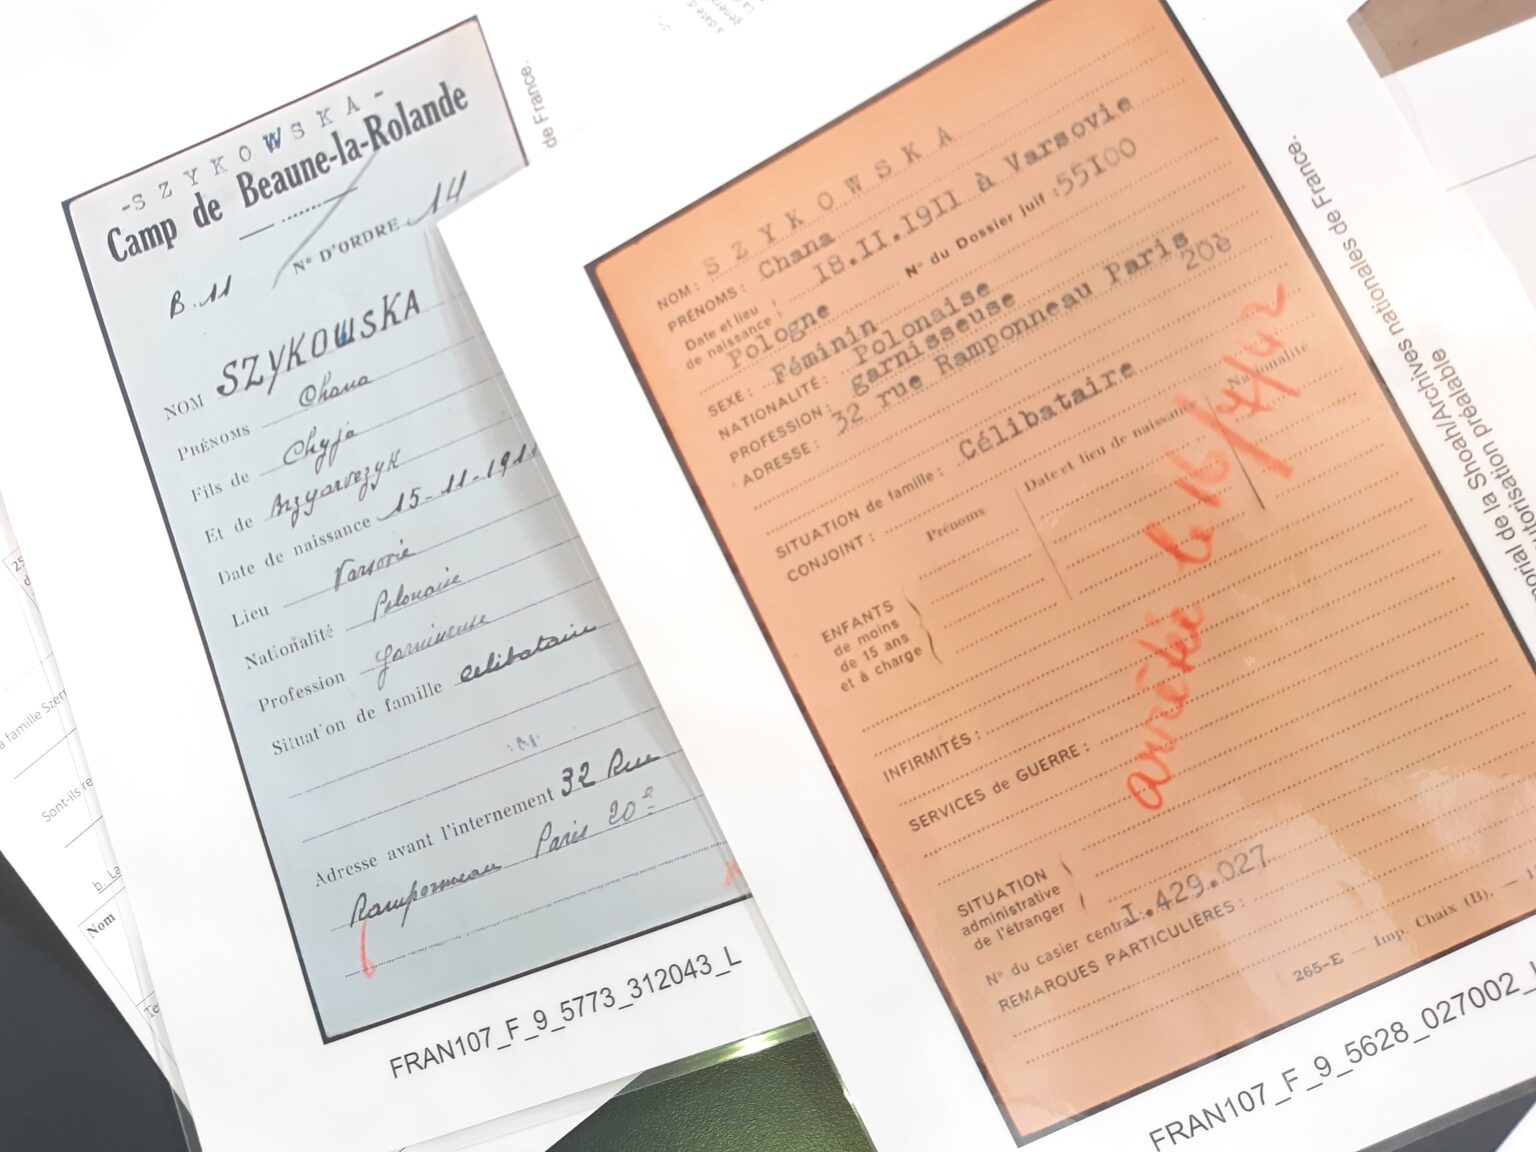 -SZYKOWSKA-
Camp de Beaune-la-Rolande
N° D'ORDRE 14
B.11
NOM SZYKOWSKA
PRÉNOMS Chana
Fils de Chyja
Et de
Date de naissance 15-11-1911
Lieu Varsovie
Nationalité Polonaise
Profession garnisseuse
Situation de famille celibataire
Adresse avant l'internement 32 Rue
Ramponneau Paris 20e
FRAN107_F_9_5773_312043_L
de France.
NOM: SZYKOWSKA
PRÉNOMS: Chana
Date et lieu de naissance 18.11.1911 à Varsovie
Pologne N° du Dossier juif: 55100
SEXE: Féminin
NATIONALITÉ: Polonaise
PROFESSION: garnisseuse
ADRESSE: 32 rue Ramponneau Paris
20è
SITUATION de famille: Célibataire
CONJOINT:
Prénoms Date et lieu de naissance Nationalité
ENFANTS
de moins
de 15 ans
et à charge
arrêtée le 16/7/42
INFIRMITÉS:
SERVICES de GUERRE:
SITUATION
administrative
de l'étranger
N° du casier central I.429.027
REMARQUES PARTICULIÈRES:
265-E — Imp. Chaix (B). —
FRAN107_F_9_5628_027002_L
de la Shoah/Archives nationales de France.
préalable
famille
Sont-ils
b. La
Nom